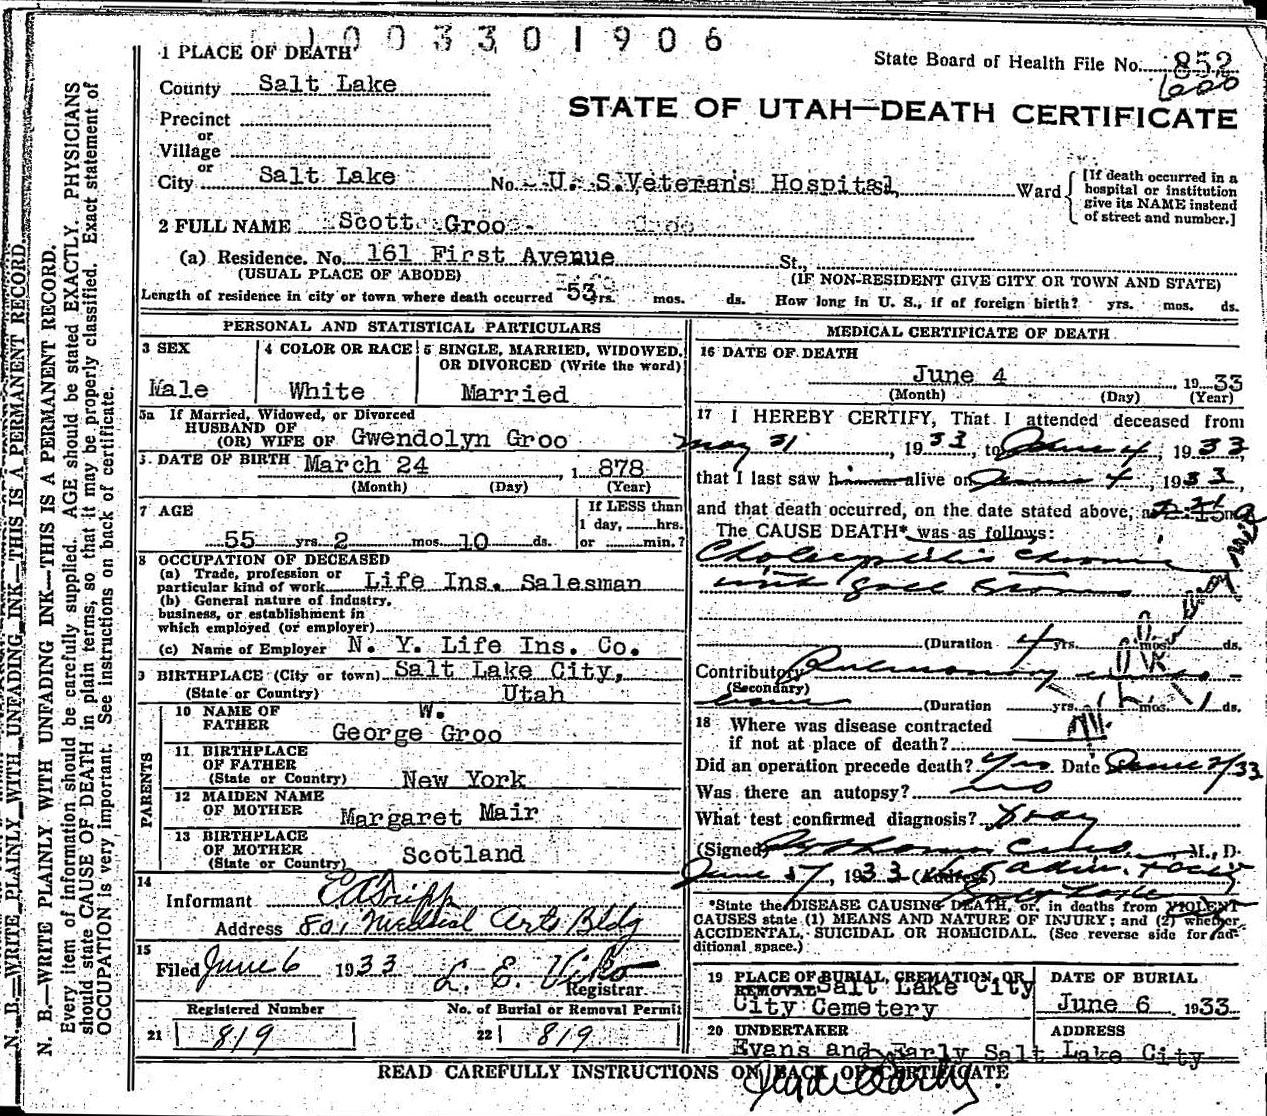 1003301906
State Board of Health File No. 852
STATE OF UTAH—DEATH CERTIFICATE
1 PLACE OF DEATH
County Salt Lake
Precinct
or
Village
or
City Salt Lake No. U. S. Veterans Hospital, Ward
[If death occurred in a
hospital or institution
give its NAME instead
of street and number.]
2 FULL NAME Scott Groo
(a) Residence. No. 161 First Avenue St.,
(USUAL PLACE OF ABODE) (IF NON-RESIDENT GIVE CITY OR TOWN AND STATE)
Length of residence in city or town where death occurred 53 yrs. mos. ds. How long in U. S., if of foreign birth? yrs. mos. ds.
PERSONAL AND STATISTICAL PARTICULARS
3 SEX
Male
4 COLOR OR RACE
White
5 SINGLE, MARRIED, WIDOWED,
OR DIVORCED (Write the word)
Married
5a If Married, Widowed, or Divorced
HUSBAND OF
(OR) WIFE OF Gwendolyn Groo
DATE OF BIRTH March 24, 1878
(Month) (Day) (Year)
7 AGE
55 yrs. 2 mos. 10 ds.
If LESS than
1 day, hrs.
or min.?
8 OCCUPATION OF DECEASED
(a) Trade, profession or
particular kind of work Life Ins. Salesman
(b) General nature of industry,
business, or establishment in
which employed (or employer)
(c) Name of Employer N. Y. Life Ins. Co.
9 BIRTHPLACE (City or town) Salt Lake City,
(State or Country) Utah
PARENTS
10 NAME OF
FATHER George W. Groo
11 BIRTHPLACE
OF FATHER
(State or Country) New York
12 MAIDEN NAME
OF MOTHER Margaret Mair
13 BIRTHPLACE
OF MOTHER
(State or Country) Scotland
14
Informant E A Tripp
Address 801 Medical Arts Bldg
15
Filed June 6 1933 L. E. Viko
Registrar
Registered Number No. of Burial or Removal Permit
21 819 22 819
MEDICAL CERTIFICATE OF DEATH
16 DATE OF DEATH
June 4, 1933
(Month) (Day) (Year)
17 I HEREBY CERTIFY, That I attended deceased from
May 31, 1933, to June 4, 1933,
that I last saw him alive on June 4, 1933,
and that death occurred, on the date stated above, at
The CAUSE DEATH* was as follows:
Cholecystitis chronic
with gall stones
(Duration 4 yrs. mos. ds.
Contributory Pulmonary
(Secondary)
(Duration yrs. mos. 1 ds.
18 Where was disease contracted
if not at place of death?
Did an operation precede death? Yes Date June 2/33
Was there an autopsy? no
What test confirmed diagnosis? Xray
(Signed) M. D.
June 1933 (Address) Vet Adm. Facility
Salt Lake
*State the DISEASE CAUSING DEATH, or, in deaths from VIOLENT
CAUSES state (1) MEANS AND NATURE OF INJURY; and (2) whether
ACCIDENTAL, SUICIDAL OR HOMICIDAL. (See reverse side for ad-
ditional space.)
19 PLACE OF BURIAL, CREMATION, OR
REMOVAL Salt Lake City
City Cemetery
DATE OF BURIAL
June 6 1933
20 UNDERTAKER ADDRESS
Evans and Early Salt Lake City
READ CAREFULLY INSTRUCTIONS ON BACK OF CERTIFICATE
N. B.—WRITE PLAINLY WITH UNFADING INK—THIS IS A PERMANENT RECORD.
N. B.—WRITE PLAINLY WITH UNFADING INK—THIS IS A PERMANENT RECORD.
Every item of information should be carefully supplied. AGE should be stated EXACTLY. PHYSICIANS
should state CAUSE OF DEATH in plain terms, so that it may be properly classified. Exact statement of
OCCUPATION is very important. See instructions on back of certificate.